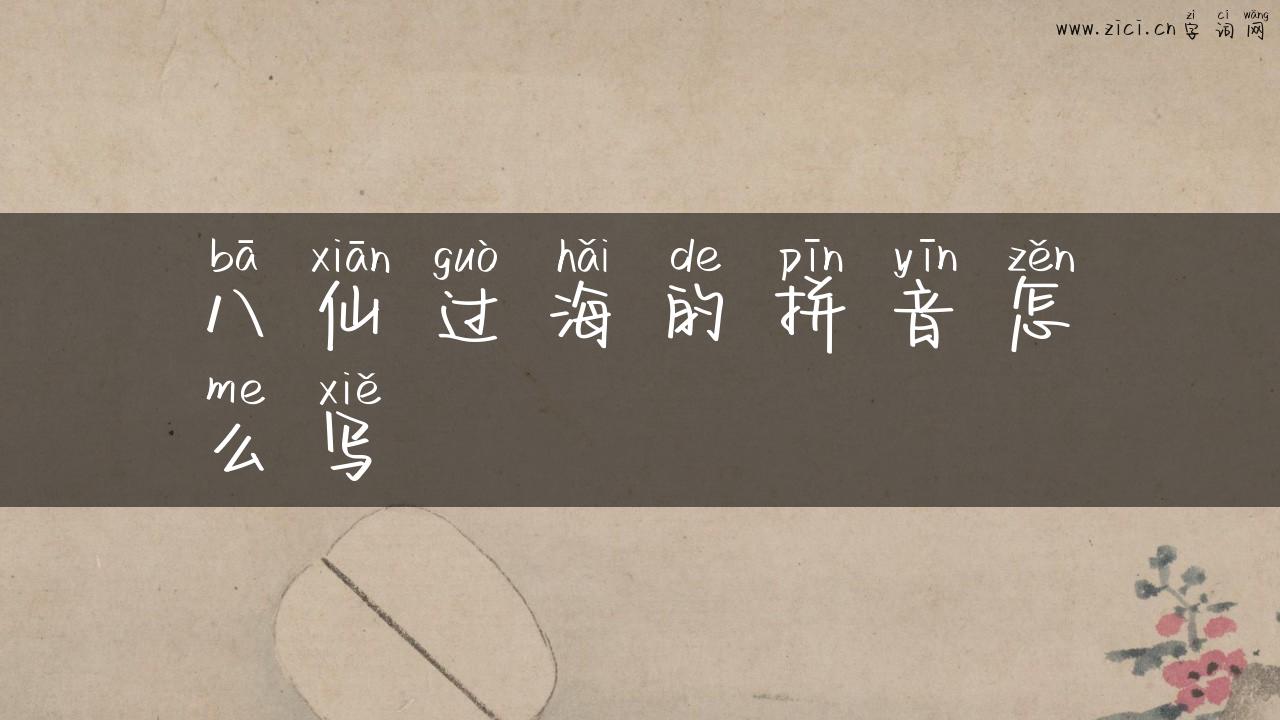 zì cí wǎng
www.zici.cn 字词网
bā xiān guò hǎi de pīn yīn zěn
八仙过海的拼音怎
me xiě
么写